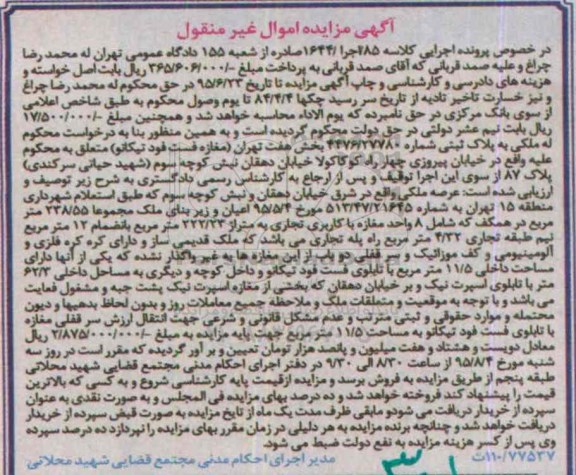 آگهی مزایده اموال غیر منقول
در خصوص پرونده اجرایی کلاسه 285اجرا /1644صادره از شعبه 155 دادگاه عمومی تهران له محمد رضا
چراغ و علیه صمد قربانی که آقای صمد قربانی به پرداخت مبلغ /365/606/000 ریال بابت اصل خواسته و
هزینه های دادرسی و کارشناسی و چاپ آگهی مزایده تا تاریخ 95/6/23 در حق محکوم له محمد رضا چراغ
و نیز خسارت تاخیر تادیه از تاریخ سر رسید چکها 84/4/4 تا یوم وصول محکوم به طبق شاخص اعلامی
از سوی بانک مرکزی در حق نامبرده که یوم الاداء محاسبه خواهد شد و همچنین مبلغ -/17/500/000
ریال بابت نیم عشر دولتی در حق دولت محکوم گردیده است و به همین منظور بنا به درخواست محکوم
له ملکی به پلاک ثبتی شماره 4476/27780 بخش هفت تهران (مغازه فست فود تیکانو) متعلق به محکوم
علیه واقع در خیابان پیروزی چهار راه کوکاکولا خیابان دهقان نبش کوچه سوم (شهید حیاتی سرکندی)
پلاک 87 از سوی این اجرا توقیف و پس از ارجاع به کارشناس رسمی دادگستری به شرح زیر توصیف و
ارزیابی شده است: عرصه ملکی واقع در شرق خیابان دهقان و نبش کوچه سوم که طبق استعلام شهرداری
منطقه 15 تهران به شماره 513/47/21645 مورخ 95/5/4 اعیان و زیر بنای ملک مجموعا 238/55 متر
مربع در همکف که شامل 8 واحد مغازه با کاربری تجاری به متراژ 222/23 متر مربع بانضمام 12 متر مربع
نیم طبقه تجاری 4/32 متر مربع راه پله تجاری می باشد که ملک قدیمی ساز و دارای کره کره فلزی و
آلومینیومی و کف موزائیک و سر قفلی دو باب از این مغازه ها به غیر واگذار نشده که یکی از آنها دارای
مساحت داخلی 11/5 متر مربع با تابلوی فست فود تیکانو و داخل کوچه و دیگری به مساحل داخلی 62/3
متر با تابلوی اسپرت نیک و بر خیابان دهقان که بخشی از مغازه اسپرت نیک پشت جبه و مشغول فعایت
می باشد و با توجه به موقعیت و متعلقات ملک و ملاحظه جمیع معاملات روز و بدون لحاظ بدهیها و دیون
محتمله و موارد حقوقی و ثبتی مترتب و عدم مشکل قانونی و شرعی جهت انتقال ارزش سر قفلی مغازه
با تابلوی فست فود تیکانو به مساحت 11/5 متر مربع جهت پایه مزایده به مبلغ -/2/875/000/000 ریال
معادل دویست و هشتاد و هفت میلیون و پانصد هزار تومان تعیین و بر آورد گردیده که مقرر است در روز سه
شنبه مورخ 95/8/4 از ساعت 8/30 الی 9/30 در دفتر اجرای احکام مدنی مجتمع قضایی شهید محلاتی
طبقه پنجم از طریق مزایده به فروش برسد و مزایده ازقیمت پایه کارشناسی شروع و به کسی که بالاترین
قیمت را پیشنهاد کند فروخته خواهد شد و ده درصد بهای مزایده فی المجلس و به صورت نقدی به عنوان
سپرده از خریدار دریافت می شود و مابقی ظرف مدت یک ماه از تایخ مزایده به صورت قیض سپرده از خریدار
دریافت خواهد شد و چنانچه برنده مزایده به هر دلیلی در زمان مقرر بهای مزایده را نپردازد ده درصد سپرده
وی پس از کسر هزینه مزایده به نفع دولت ضبط می شود.
110/77537ت مدیر اجرای احکام مدنی مجتمع قضایی شهید محلاتی